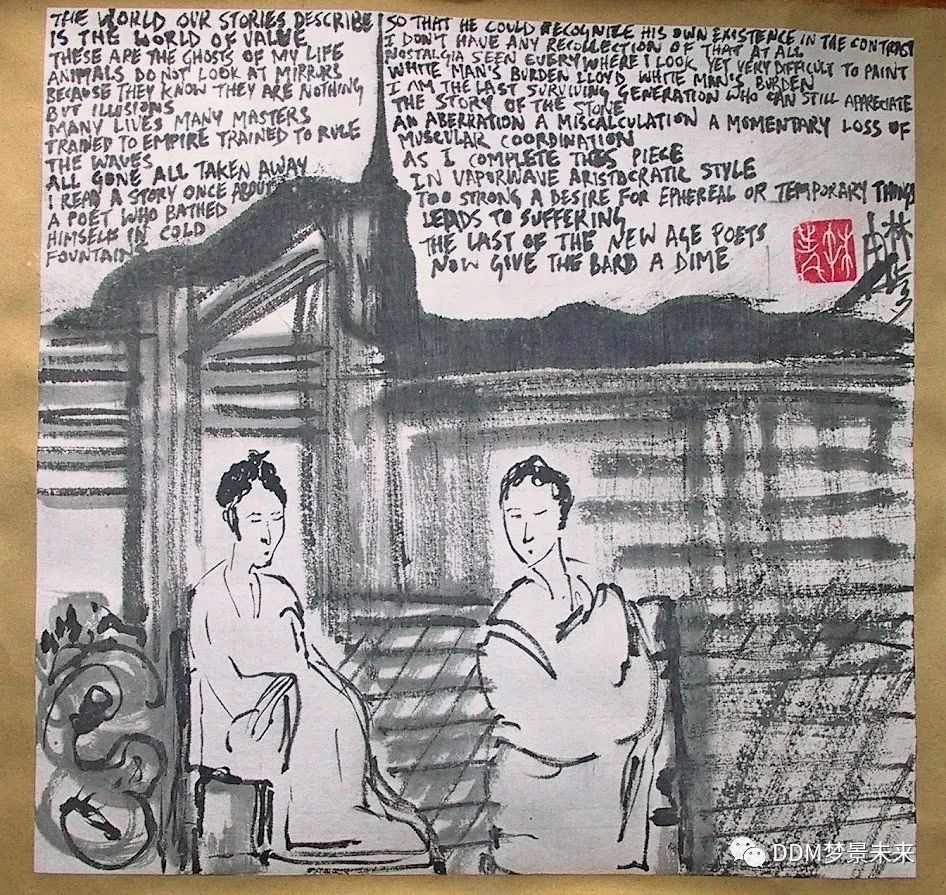 THE WORLD OUR STORIES DESCRIBE
IS THE WORLD OF VALUE
THESE ARE THE GHOSTS OF MY LIFE
ANIMALS DO NOT LOOK AT MIRRORS
BECAUSE THEY KNOW THEY ARE NOTHING
BUT ILLUSIONS
MANY LIVES MANY MASTERS
TRAINED TO EMPIRE TRAINED TO RULE
THE WAVES
ALL GONE ALL TAKEN AWAY
I READ A STORY ONCE ABOUT
A POET WHO BATHED
HIMSELF IN COLD
FOUNTAINS
SO THAT HE COULD RECOGNIZE HIS OWN EXISTENCE IN THE CONTRAST
I DON'T HAVE ANY RECOLLECTION OF THAT AT ALL
NOSTALGIA SEEN EVERYWHERE I LOOK YET VERY DIFFICULT TO PAINT
WHITE MAN'S BURDEN LLOYD WHITE MAN'S BURDEN
I AM THE LAST SURVIVING GENERATION WHO CAN STILL APPRECIATE
THE STORY OF THE STONE
AN ABERRATION A MISCALCULATION A MOMENTARY LOSS OF
MUSCULAR COORDINATION
AS I COMPLETE THIS PIECE
IN VAPORWAVE ARISTOCRATIC STYLE
TOO STRONG A DESIRE FOR EPHEREAL OR TEMPORARY THINGS
LEADS TO SUFFERING
THE LAST OF THE NEW AGE POETS
NOW GIVE THE BARD A DIME
林
DDM梦景未来